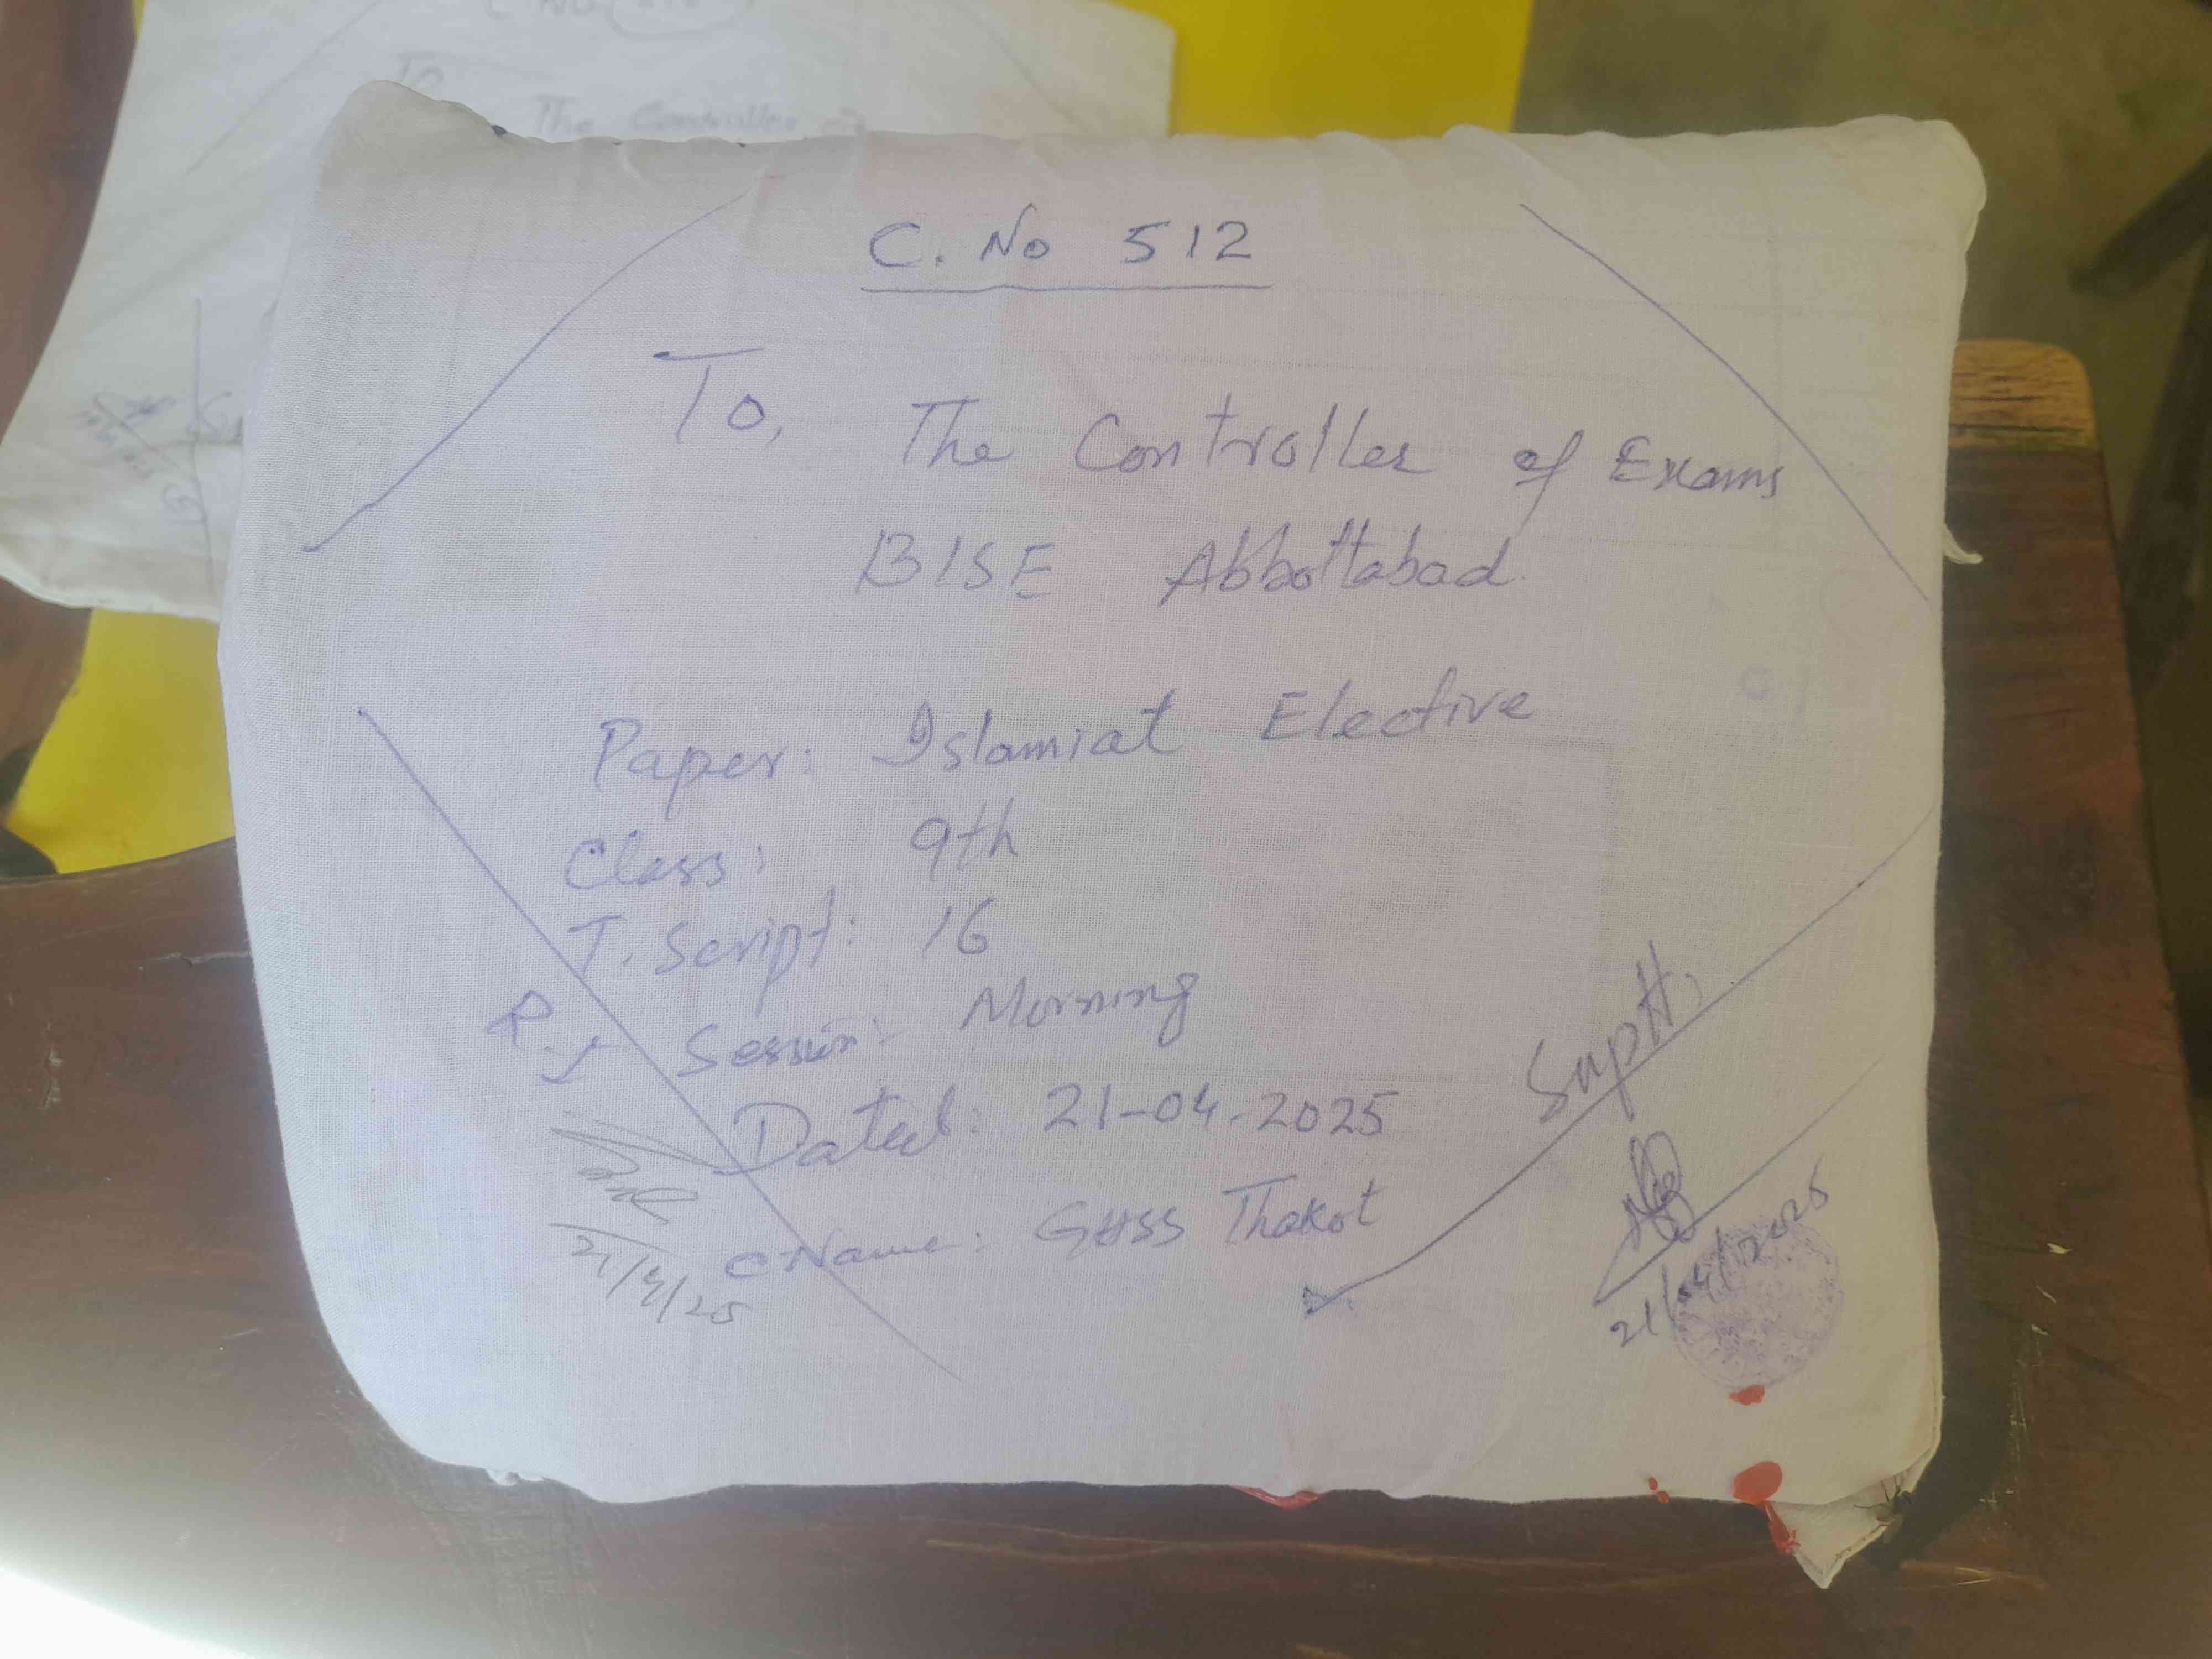 C. No 512
To,
The Controller of Exams
BISE Abbottabad
Paper: Islamiat Elective
Class: 9th
T. Script: 16
Session: Morning
Dated: 21-04-2025
C Name: GHSS Thakot
R.I
21/4/25
Suptt.
21/04/2025
To
The Controller